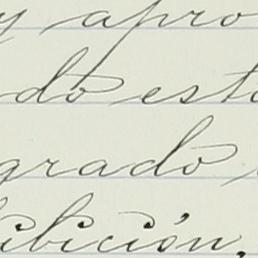 y apro
do esto
grado
ibición.